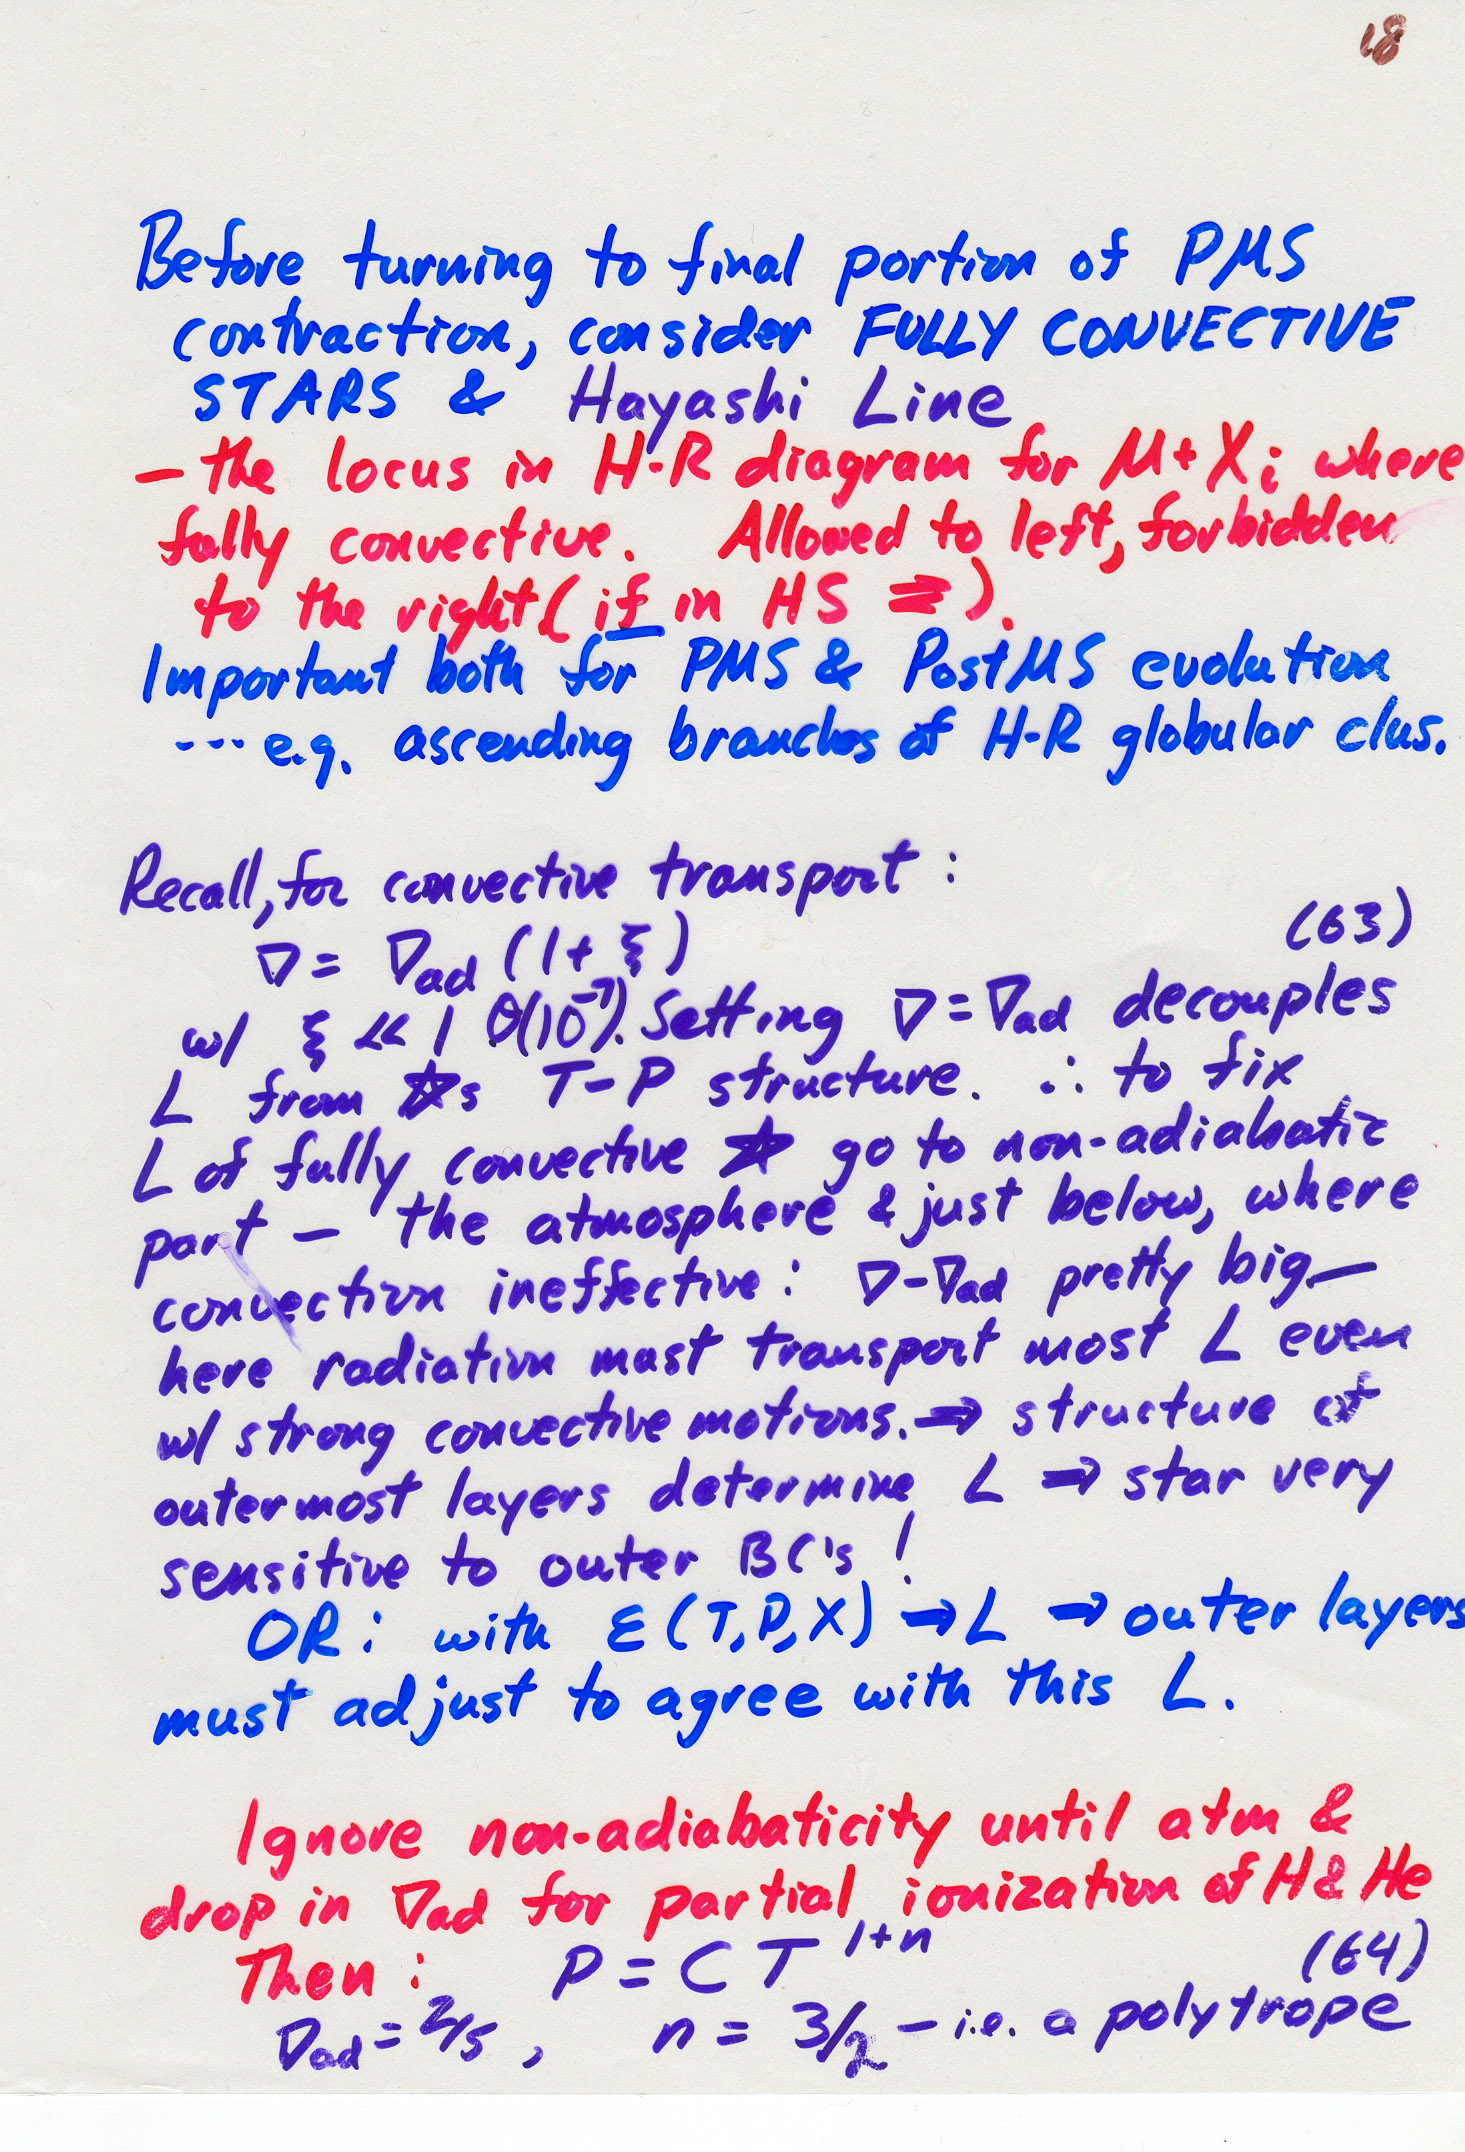 18
Before turning to final portion of PMS
contraction, consider FULLY CONVECTIVE
STARS & Hayashi Line
— the locus in H-R diagram for M + Xi where
fully convective. Allowed to left, forbidden
to the right (if in HS ⇌).
Important both for PMS & PostMS evolution
--- e.g. ascending branches of H-R globular clus.
Recall, for convective transport:
∇ = ∇ad (1 + ξ) (63)
w/ ξ << 1 O(10⁻⁷). Setting ∇ = ∇ad decouples
L from ☆s T-P structure. ∴ to fix
L of fully convective ☆ go to non-adiabatic
part — the atmosphere & just below, where
convection ineffective: ∇-∇ad pretty big —
here radiation must transport most L even
w/ strong convective motions. ⇒ structure of
outermost layers determine L ⇒ star very
sensitive to outer BC's!
OR: with ε(T,P,X) → L ⇒ outer layers
must adjust to agree with this L.
Ignore non-adiabaticity until atm &
drop in ∇ad for partial ionization of H & He
Then: P = C T¹⁺ⁿ (64)
∇ad = 2/5, n = 3/2 — i.e. a polytrope